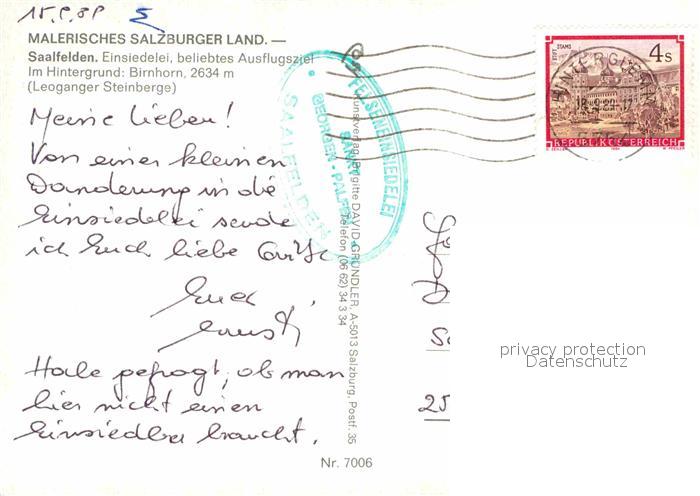 15.9.89
MALERISCHES SALZBURGER LAND. —
Saalfelden. Einsiedelei, beliebtes Ausflugsziel
Im Hintergrund: Birnhorn, 2634 m
(Leoganger Steinberge)
Meine Lieben!
Von einer kleinen
Wanderung in die
Einsiedelei sende
ich Euch liebe Grüße
Euer
Ernst
Habe gefragt, ob man
hier nicht einen
Einsiedler braucht.
FELSENEINSIEDELEI
SANKT
GEORGEN - PALFEN
SAALFELDEN
Kunstverlag Brigitte DAVID-GRÜNDLER, A-5013 Salzburg, Postf. 35
Telefon (06 62) 34 3 34
Nr. 7006
STIFT STAMS
4 S
18.-9.89-17
REPUBLIK ÖSTERREICH
privacy protection
Datenschutz
25